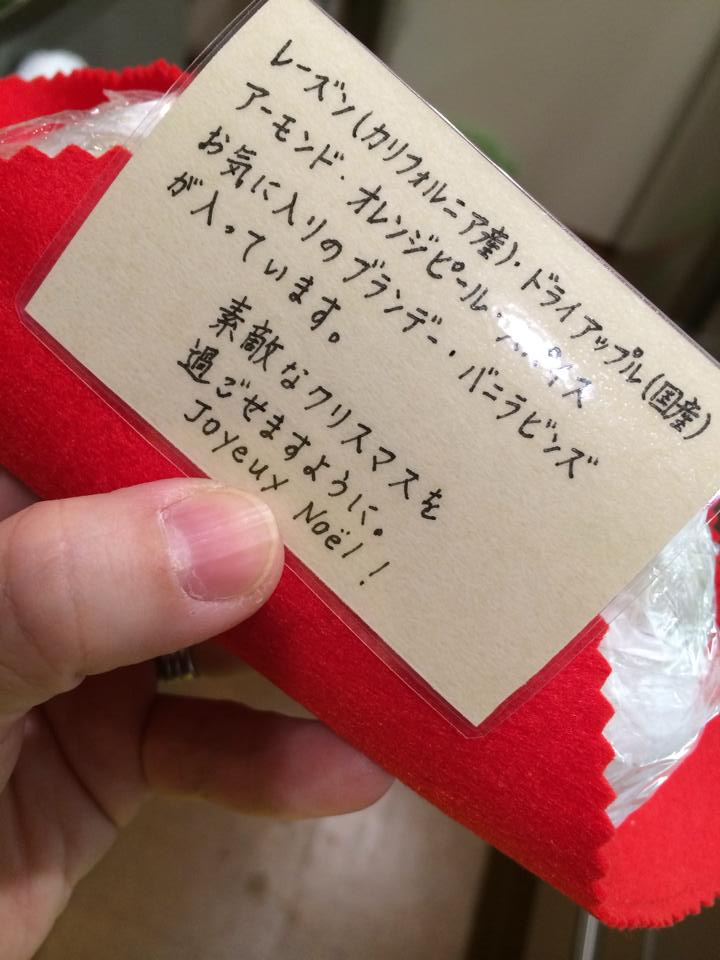 レーズン(カリフォルニア産)・ドライアップル(国産)
アーモンド・オレンジピール・スパイス
お気に入りのブランデー・バニラビンズ
が入っています。
素敵なクリスマスを
過ごせますように。
Joyeux Noël!